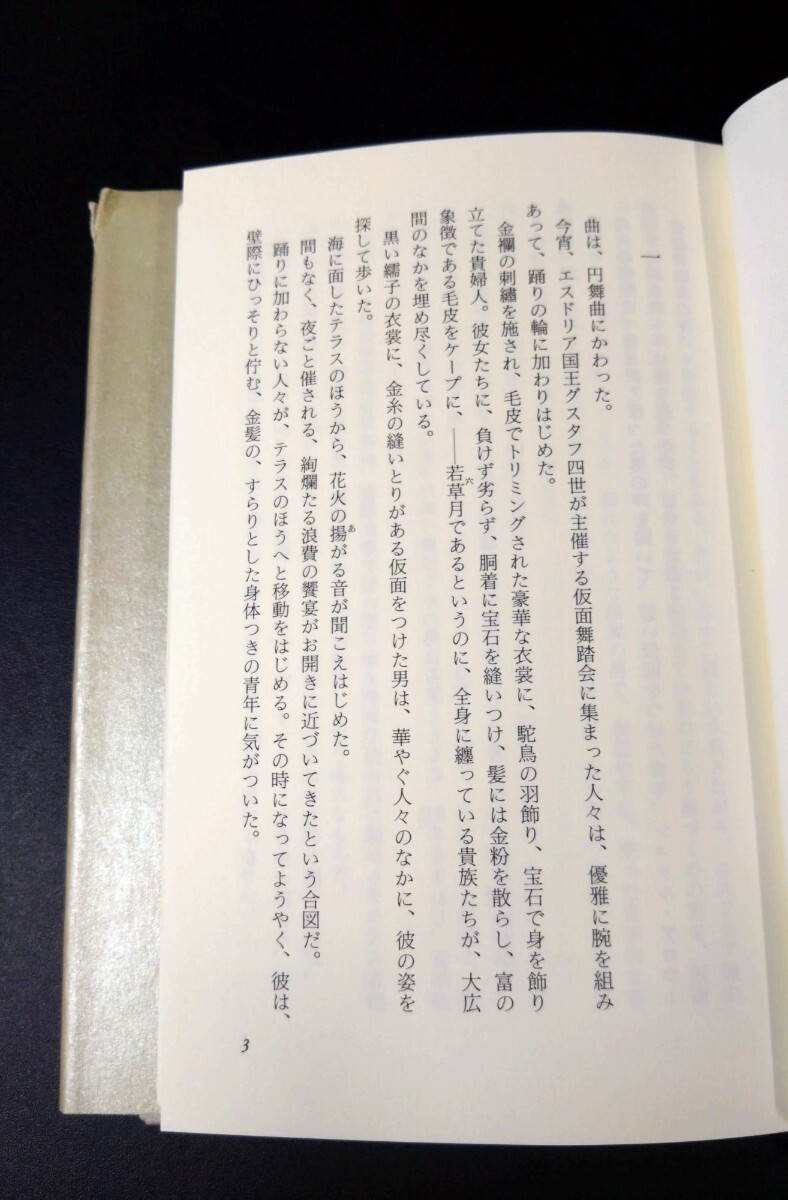 一
曲は、円舞曲にかわった。
今宵、エスドリア国王グスタフ四世が主催する仮面舞踏会に集まった人々は、優雅に腕を組み
あって、踊りの輪に加わりはじめた。
金襴の刺繡を施され、毛皮でトリミングされた豪華な衣裳に、駝鳥の羽飾り、宝石で身を飾り
立てた貴婦人。彼女たちに、負けず劣らず、胴着に宝石を縫いつけ、髪には金粉を散らし、富の
象徴である毛皮をケープに、――若草月であるというのに、全身に纏っている貴族たちが、大広
六
間のなかを埋め尽くしている。
黒い繻子の衣裳に、金糸の縫いとりがある仮面をつけた男は、華やぐ人々のなかに、彼の姿を
探して歩いた。
海に面したテラスのほうから、花火の揚がる音が聞こえはじめた。
あ
間もなく、夜ごと催される、絢爛たる浪費の饗宴がお開きに近づいてきたという合図だ。
踊りに加わらない人々が、テラスのほうへと移動をはじめる。その時になってようやく、彼は、
壁際にひっそりと佇む、金髪の、すらりとした身体つきの青年に気がついた。
3